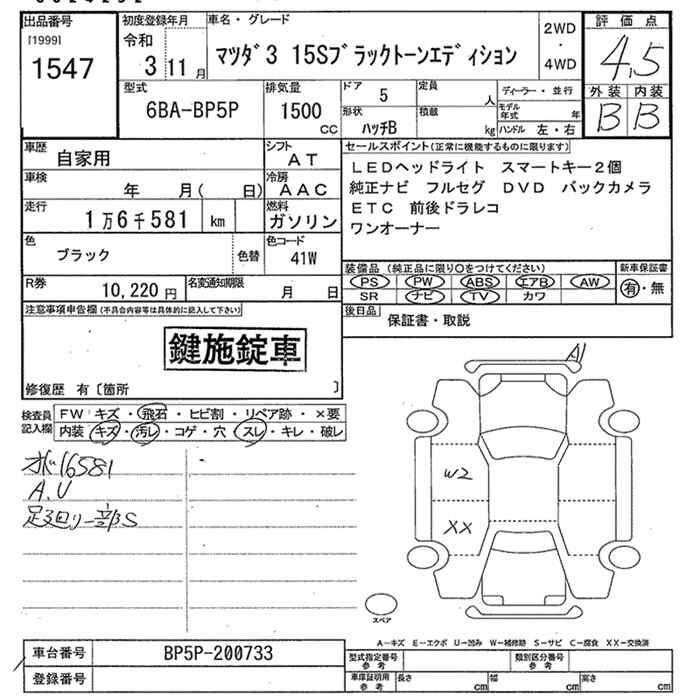 出品番号
[1999]
1547
初度登録年月
令和
3 11月
車名・グレード
マツダ3 15Sブラックトーンエディション
2WD
・
4WD
評価点
4.5
外装 内装
B B
型式
6BA-BP5P
排気量
1500
cc
ドア
5
形状
ハッチB
定員
人
積載
kg
ディーラー・並行
モデル年式 年
ハンドル 左・右
車歴
自家用
シフト
AT
車検
年 月( 日)
冷房
AAC
走行
1万6千581 km
燃料
ガソリン
色
ブラック
色替
色コード
41W
R券
10,220円
名変通知期限
月 日
セールスポイント(正常に機能するものに限ります)
LEDヘッドライト スマートキー2個
純正ナビ フルセグ DVD バックカメラ
ETC 前後ドラレコ
ワンオーナー
装備品 (純正品に限り○をつけてください)
PS PW ABS エアB AW
SR ナビ TV カワ
新車保証書
有・無
後日品
保証書・取説
注意事項申告欄(不具合内容等は具体的に記入して下さい)
鍵施錠車
修復歴 有〔箇所 〕
検査員
記入欄
FW キズ・飛石・ヒビ割・リペア跡・×要
内装 キズ・汚レ・コゲ・穴・スレ・キレ・破レ
16581
A.U
足廻り一部S
A1
W2
XX
スペア
A−キズ E−エクボ U−凹み W−補修跡 S−サビ C−腐食 XX−交換済
車台番号
BP5P-200733
登録番号
型式指定番号
参考
類別区分番号
参考
車庫証明用
参考
長さ cm
幅 cm
高さ cm